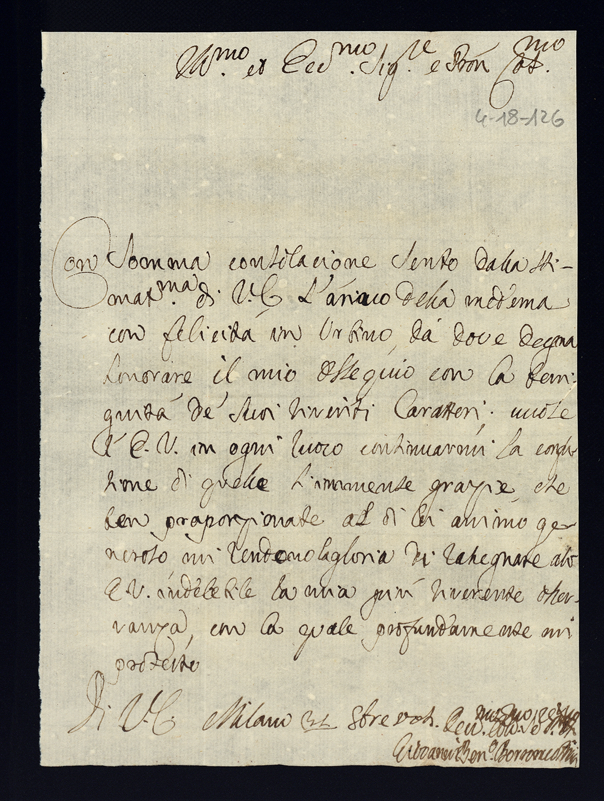 Ill.mo et Ecc.mo Sig.re e Pron Col.mo
4-18-126
Con somma consolacione sento dalla sti-
mat.ma di V.E. l'arivo della medema
con felicità in Urbino, da dove degna
honorare il mio ossequio con la beni-
gnità de suoi riveriti Caratteri. vuole
l'E.V. in ogni luoco continuarmi la
tione di quelle grazie, che
ben proporzionate al di lei animo ge-
neroso mi rendono la gloria di rasegnare
E.V. indelebile la mia più riverente osser-
vanza, con la quale profundamente mi
protesto
Di V.E. Milano 8bre
Giovanni Ben.o Borromeo